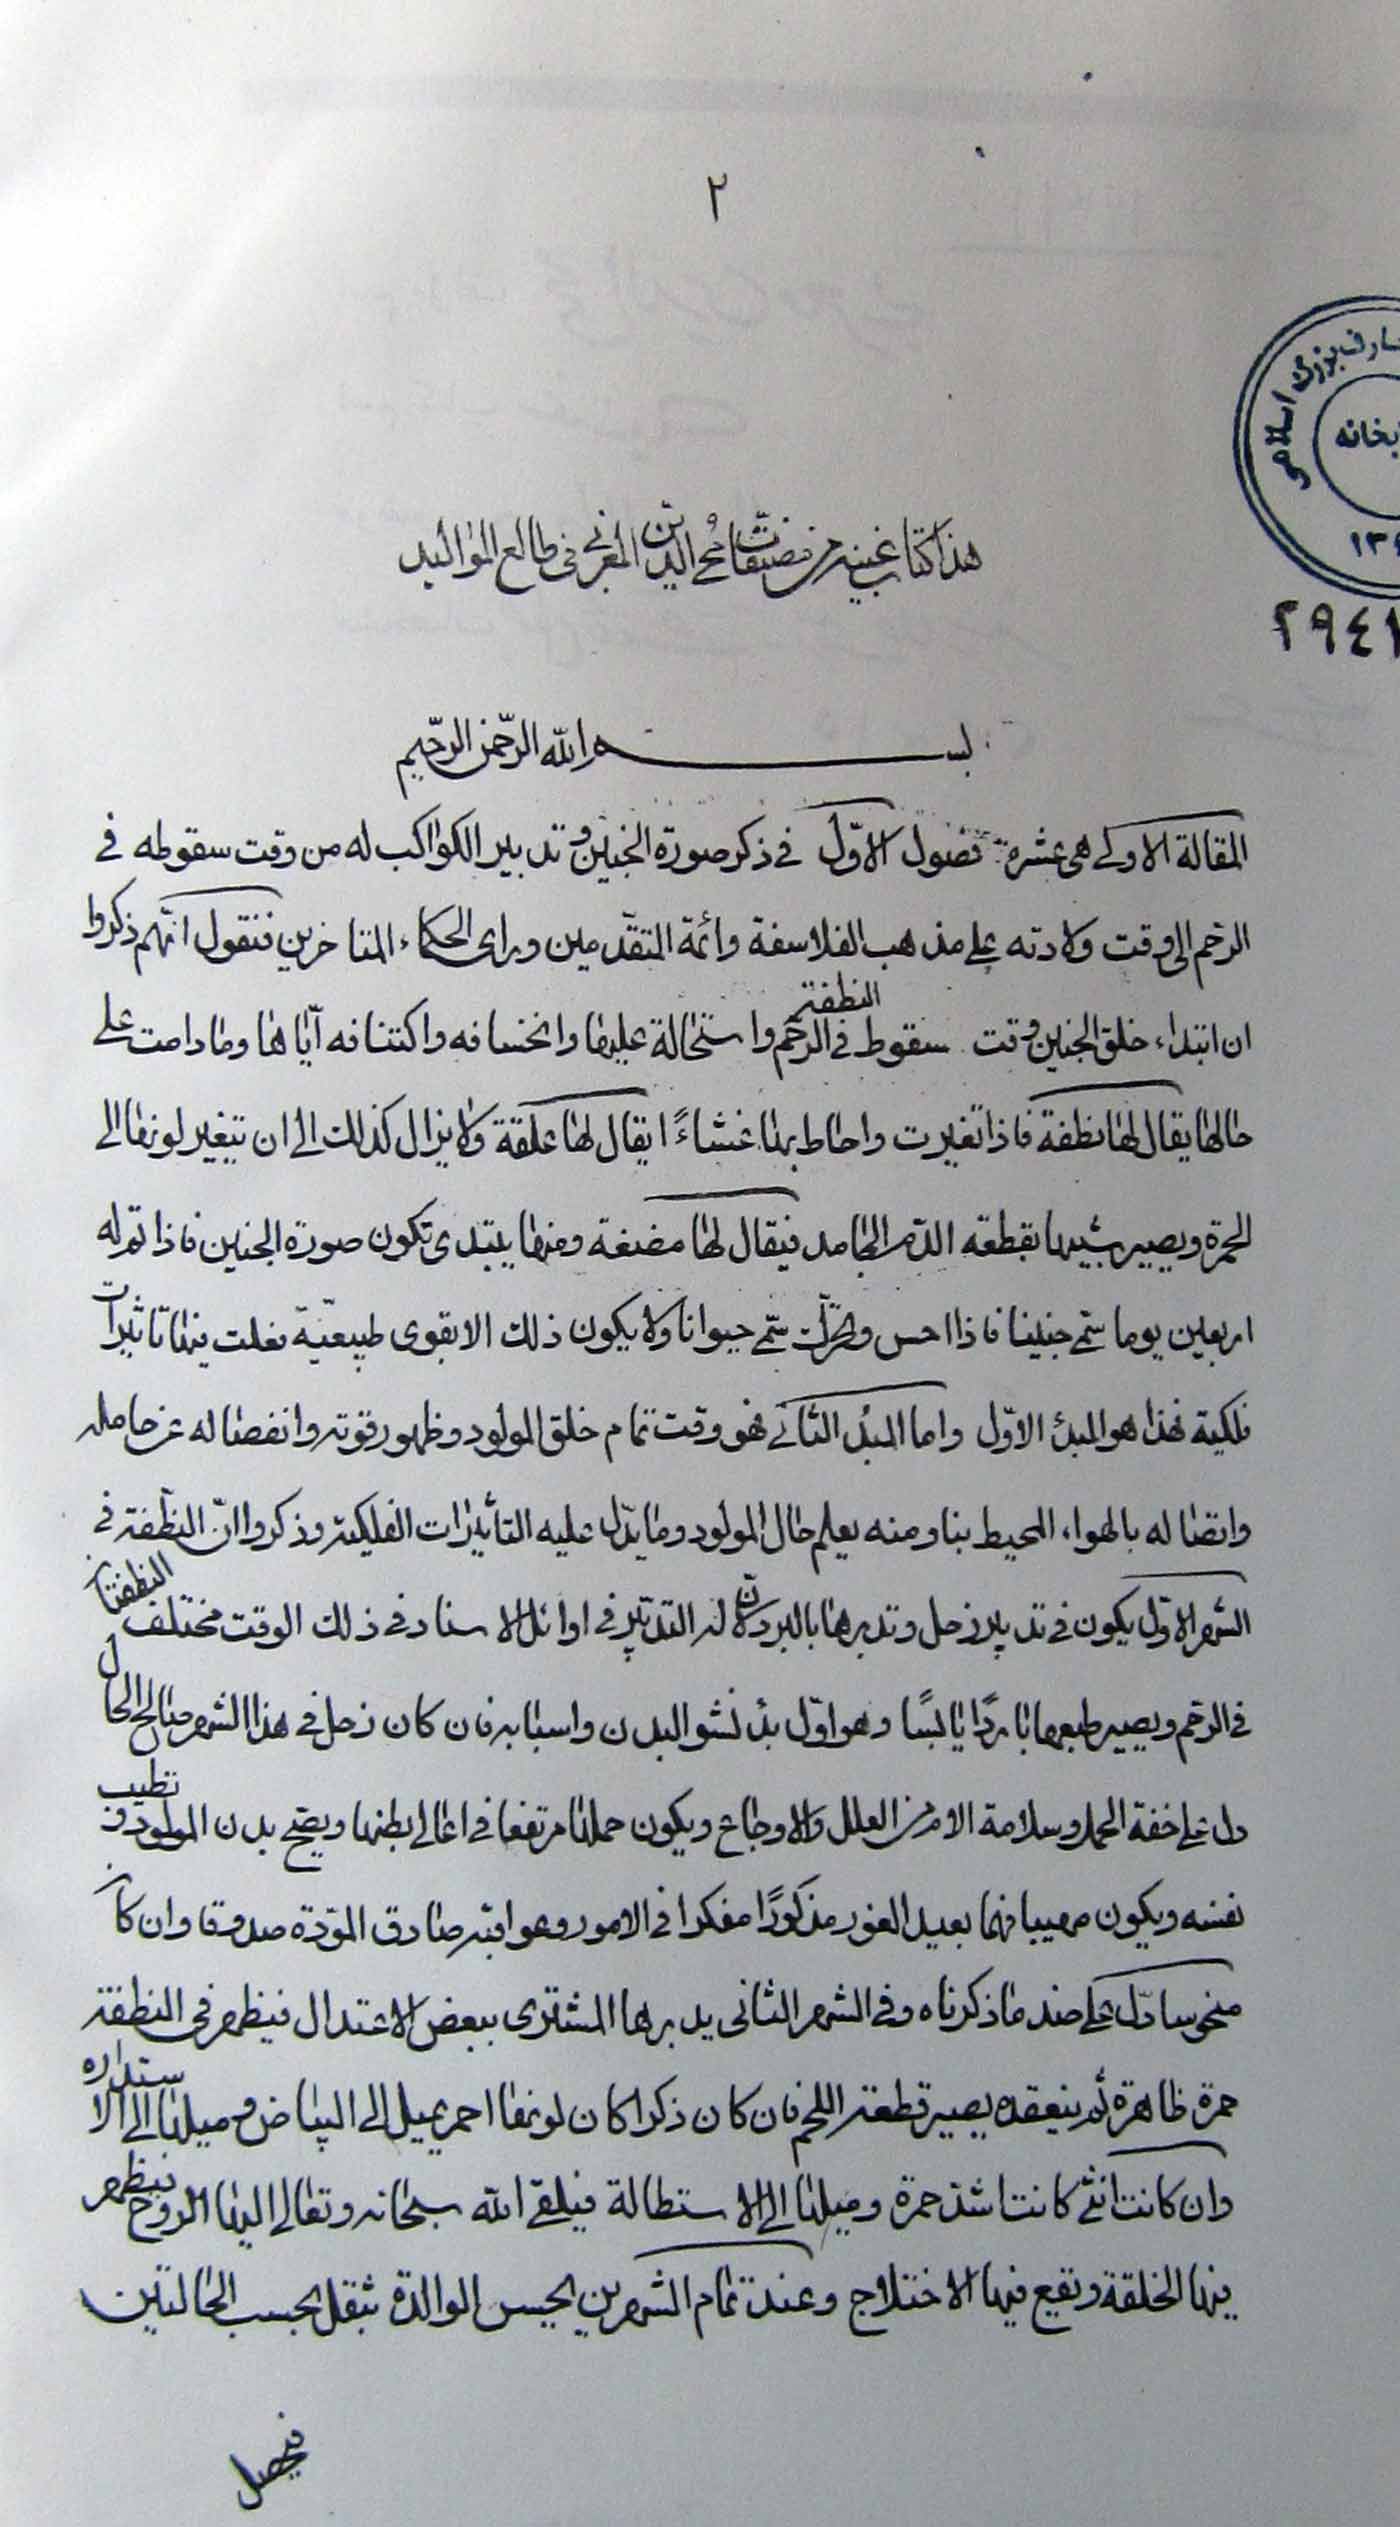 ٢
هذا كتاب غنيه من مصنّفات محي الدين المغربي في طالع المواليد
بسم الله الرّحمن الرّحيم
المقالة الاولى هى عشره فصول الاوّل في ذكر صورة الجنين وتدبير الكواكب له من وقت سقوطه في
الرحم الى وقت ولادته على مذهب الفلاسفة وائمة المتقدّمين وراى الحكماء المتاخرين فنقول انّهم ذكروا
ان ابتداء خلق الجنين وقت سقوط النطفة في الرحم واستحالة عليها وانخسافه واكتنافه آيّاها وما دامت على
حالها يقال لها نطفة فاذا تغيرت واحاط بها غشاءً ا يقال لها علقة ولا يزال كذلك الى ان يتغير لونها الى
الحمرة ويصير شبيها بقطعه الدّم الجامد فيقال لها مضغة ومنها يبتدى تكون صورة الجنين فاذا تم له
اربعين يوما سمّى جنينا فاذا احس وتحرّك سمّى حيوانا ولا يكون ذلك الا بقوى طبيعيّة فعلت فيها تاثيرات
فلكية فهذا هو المبدئ الاوّل واما المبدُ الثانى فهو وقت تمام خلق المولود وظهور قوته وانفصاله عن حامله
واتصاله بالهواء المحيط بنا ومنه يعلم حال المولود وما يدّل عليه التأثيرات الفلكية وذكروا انّ النطفة في
الشهر الاوّل يكون في تدبير زحل وتدبرها بالبرد لانّ له التدبير في اوائل الاسناد في ذلك الوقت مختلف النطفتان
في الرحم ويصير طبعهما باردًا يابسًا وهو اوّل بدُ نشو البدن واسبابه فان كان زحل في هذا الشهر صالح الحال
دل على خفة الحمل وسلامة الام من العلل والاوجاع ويكون حملها مرتفعا في اعالى بطنها ويصح بدن المولود و تطيب
نفسه ويكون مهيبا فهما بعيد الغور مذكورًا مفكرا في الامور وعواقبه صادق المودّة صدوقا وان كان
منحوسا دلّ على ضد ما ذكرناه وفى الشهر الثانى يدبرها المشترى ببعض الاعتدال فيظهر في النطفة
حمرة ظاهرة ثم ينعقد يصير قطعة اللحم فان كان ذكرا كان لونها احمر يميل الى البياض وميلها الى الاستداره
وان كانت انثى كانت اشد حمرة وميلها الى الاستطالة فيلقى الله سبحانه وتعالى اليها الروح فيظهر
فيها الخلقة ويقع فيها الاختلاج وعند تمام الشهرين يحس الوالدة بثقل بحسب الحالتين
فيحصل
بزرگ اسلامى
٢٩٤١